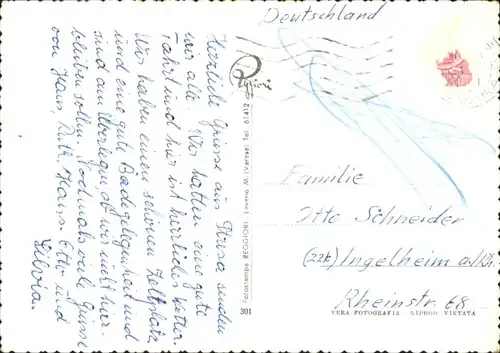 Deutschland
Herzliche Grüsse aus Ansa senden
wir alle. Wir hatten eine gute
Fahrt und hier ist herrliches Wetter.
Wir haben einen schönen Zeltplatz
und eine gute Badegelegenheit und
sind am Überlegen ob wir nicht hier
bleiben sollen. Nochmals viele Grüsse
von Hans, Ruth, Hans Otto und
Silvia.
Fotostampa REGGIORI - Laveno M. (Varese) Tel. 61412
301
Familie
Otto Schneider
(22b) Ingelheim a/Rh.
Rheinstr. 68
VERA FOTOGRAFIA - RIPROD VIETATA